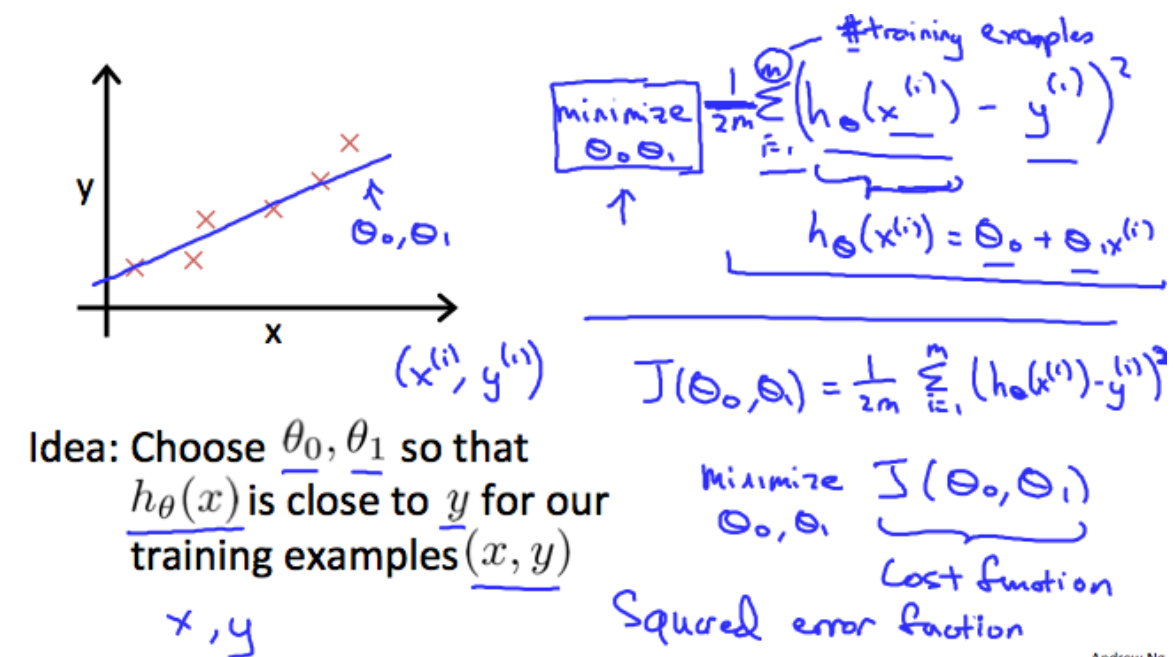 y
x
θ₀, θ₁
(x⁽ⁱ⁾, y⁽ⁱ⁾)
Idea: Choose θ₀, θ₁ so that
h_θ(x) is close to y for our
training examples (x, y)
x, y
#training examples
minimize θ₀ θ₁ 1/2m Σ_{i=1}^{m} (h_θ(x⁽ⁱ⁾) - y⁽ⁱ⁾)²
h_θ(x⁽ⁱ⁾) = θ₀ + θ₁x⁽ⁱ⁾
J(θ₀, θ₁) = 1/2m Σ_{i=1}^{m} (h_θ(x⁽ⁱ⁾) - y⁽ⁱ⁾)²
minimize J(θ₀, θ₁)
θ₀, θ₁
Cost function
Squared error faction